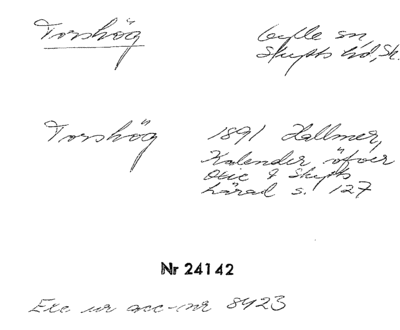 Torshög
Gylle sn,
Skytts hd, Sk.
Torshög
1891 Hallmer,
Kalender öfver
Oxie & Skytts
härad s. 127
Nr 24142
Exc ur acc-nr 8423